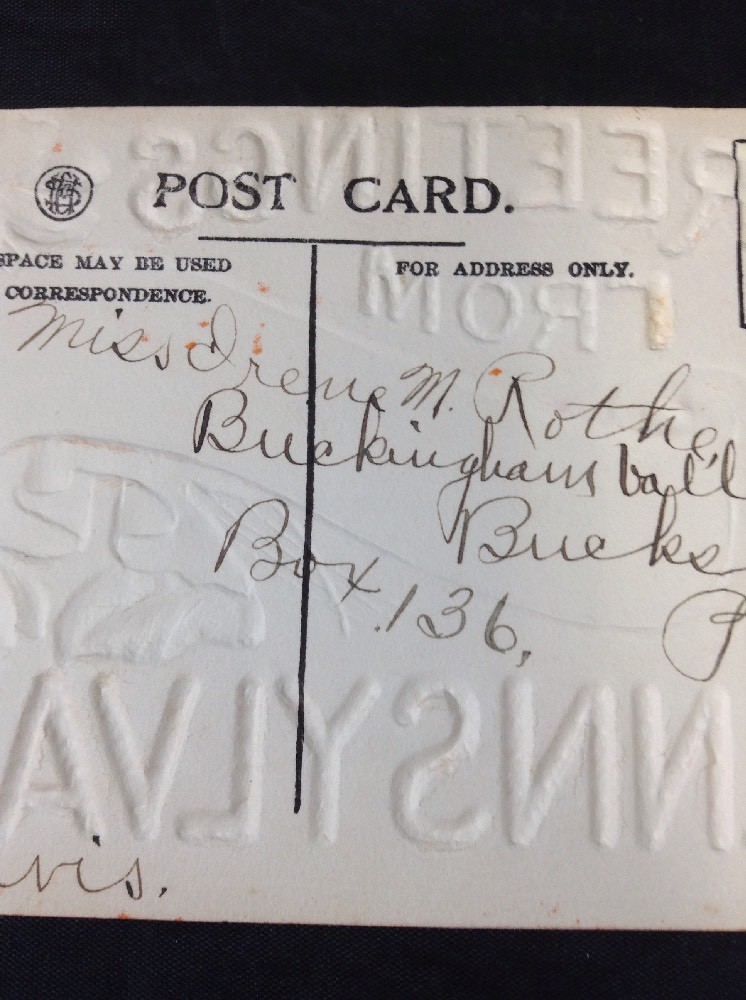 POST CARD.
SPACE MAY BE USED
CORRESPONDENCE.
FOR ADDRESS ONLY.
GREETINGS
FROM
Miss Irene M. Rothe
Buckingham Val'l
Bucks
Box.136,
P
NNSYLVA
vis.